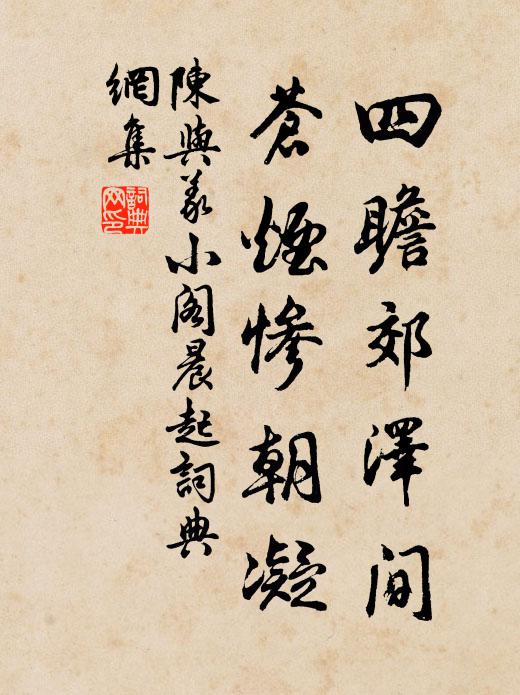 四瞻郊澤间
蒼煙惨朝凝
陳與義小閣晨起詞典
網集
詞典
网印